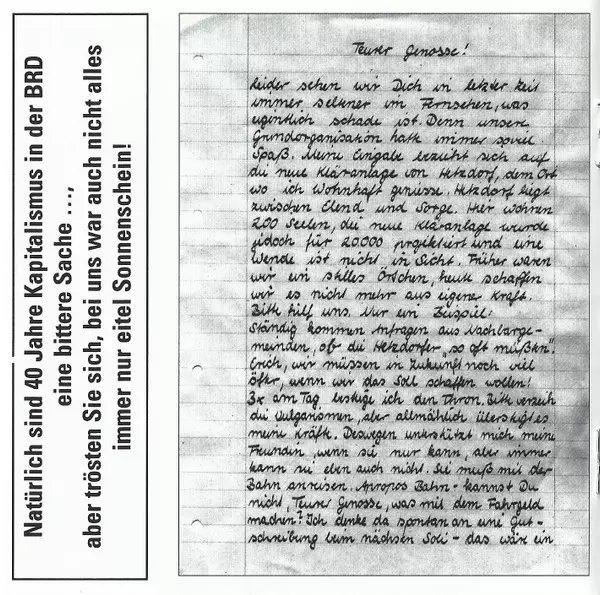 Natürlich sind 40 Jahre Kapitalismus in der BRD
eine bittere Sache ...,
aber trösten Sie sich, bei uns war auch nicht alles
immer nur eitel Sonnenschein!
Teurer Genosse!
leider sehen wir Dich in letzter Zeit
immer seltner im Fernsehen, was
eigentlich schade ist. Denn unsere
Grundorganisation hatte immer soviel
Spaß. Meine Eingabe bezieht sich auf
die neue Kläranlage von Hetzdorf, dem Ort
wo ich Wohnhaft geniesse. Hetzdorf liegt
zwischen Elend und Sorge. Hier wohnen
200 Seelen, die neue Kläranlage wurde
jedoch für 20000 projektiert und eine
Wende ist nicht in Sicht. Früher waren
wir ein stilles Örtchen, heute schaffen
wir es nicht mehr aus eigener Kraft.
Bitte hilf uns. Nur ein Beispiel:
Ständig kommen Anfragen aus Nachbarge-
meinden, ob die Hetzdorfer „so oft müßten".
Erich, wir müssen in Zukunft noch viel
öfter, wenn wir das Soll schaffen wollen!
3x am Tag besteige ich den Thron. Bitte verzeih
die Vulgarismen, aber allmählich übersteigt es
meine Kräfte. Deswegen unterstützt mich meine
Freundin, wenn sie nur kann, aber immer
kann sie eben auch nicht. Sie muß mit der
Bahn anreisen. Apropos Bahn - kannst Du
nicht, Teurer Genosse, was mit dem Fahrgeld
machen? Ich denke da spontan an eine Gut-
schreibung beim nächsten Soli - das wäre ein